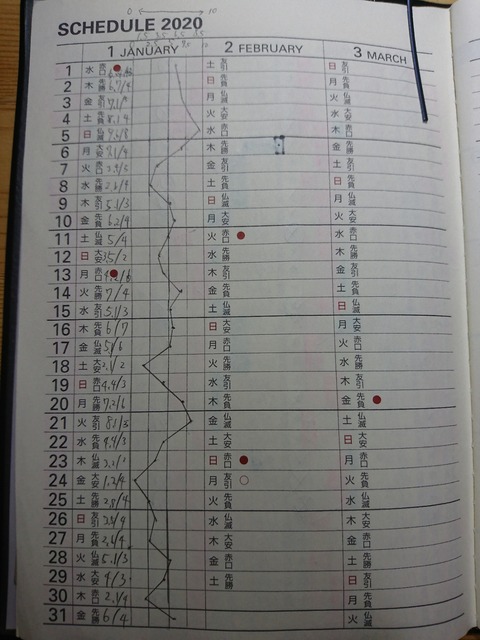 0 10
SCHEDULE 2020
1 JANUARY 2 FEBRUARY 3 MARCH
1 水 赤口 土 友引 日 友引
2 木 先勝 日 先負 月 先負
3 金 友引 月 仏滅 火 仏滅
4 土 先負 火 大安 水 大安
5 日 仏滅 水 赤口 木 赤口
6 月 大安 木 先勝 金 先勝
7 火 赤口 金 友引 土 友引
8 水 先勝 土 先負 日 先負
9 木 友引 5.1/3 日 仏滅 月 仏滅
10 金 先負 6.2/4 月 大安 火 大安
11 土 仏滅 5/4 火 赤口 水 赤口
12 日 大安 3.5/2 水 先勝 木 先勝
13 月 赤口 木 友引 金 友引
14 火 先勝 7/4 金 先負 土 先負
15 水 友引 5.1/3 土 仏滅 日 仏滅
16 木 先負 6/7 日 大安 月 大安
17 金 仏滅 月 赤口 火 赤口
18 土 大安 2.1/2 火 先勝 水 先勝
19 日 赤口 4.4/3 水 友引 木 友引
20 月 先勝 7.2/6 木 先負 金 先負
21 火 友引 金 仏滅 土 仏滅
22 水 先負 4.4/3 土 大安 日 大安
23 木 仏滅 日 赤口 月 赤口
24 金 大安 1.2/4 月 友引 火 先負
25 土 先勝 2.8/4 火 先負 水 仏滅
26 日 友引 水 仏滅 木 大安
27 月 先負 木 大安 金 赤口
28 火 仏滅 5.1/3 金 赤口 土 先勝
29 水 大安 4/3 土 先勝 日 友引
30 木 赤口 2.1/4 月 先負
31 金 先勝 6/4 火 仏滅